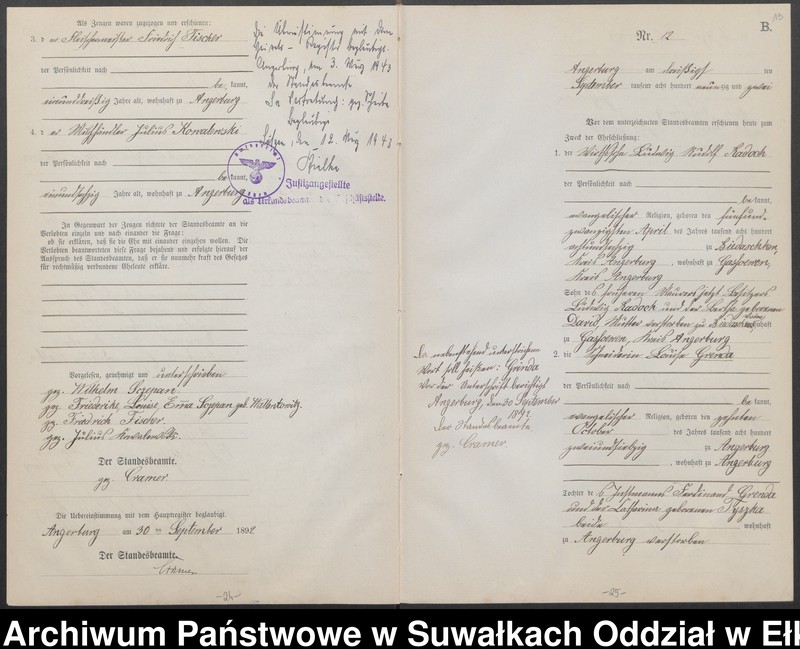 Als Zeugen waren zugezogen und erschienen:
3. der Fleischermeister Friedrich Fischer
der Persönlichkeit nach
be kannt,
einunddreißig Jahre alt, wohnhaft zu Angerburg
4. der Milchhändler Julius Kowalewski
der Persönlichkeit nach
be kannt,
Jahre alt, wohnhaft zu Angerburg
In Gegenwart der Zeugen richtete der Standesbeamte an die
Verlobten einzeln und nach einander die Frage:
ob sie erklären, daß sie die Ehe mit einander eingehen wollen. Die
Verlobten beantworteten diese Frage bejahend und erfolgte hierauf der
Ausspruch des Standesbeamten, daß er sie nunmehr kraft des Gesetzes
für rechtmäßig verbundene Eheleute erkläre.
Vorgelesen, genehmigt und unterschrieben
gez. Wilhelm Sczepan
gez. Friederike, Louise, Erna Sczepan geb.
gez. Friedrich Fischer.
gez. Julius Kowalewski.
Der Standesbeamte.
gez. Cramer.
Die Uebereinstimmung mit dem Hauptregister beglaubigt.
Angerburg am 30ten September 1892
Der Standesbeamte.
Cramer
-24-
Die Übereinstimmung mit dem
Heirats-Register beglaubigt.
Angerburg, den 3. 1943
Der Standesbeamte
In Vertretung: gez.
Beglaubigt
Lötzen, den 12. 1943
Justizangestellte
als Urkundsbeamter der Geschäftsstelle.
B.
Nr. 12
Angerburg am dreißigsten
September tausend acht hundert neunzig und zwei
Vor dem unterzeichneten Standesbeamten erschienen heute zum
Zweck der Eheschließung:
1. der Ludwig Rudolf Radoch
der Persönlichkeit nach
be kannt,
evangelischer Religion, geboren den fünfund-
zwanzigsten April des Jahres tausend acht hundert
achtundsechzig zu
Kreis Angerburg, wohnhaft zu Gassoewen,
Kreis Angerburg
Sohn des früheren Maurers jetzt Besitzers
Ludwig Radoch und der Bertha geborenen
David, Mutter verstorben zu wohnhaft
zu Gassoewen, Kreis Angerburg
2. die Schneiderin Louise Grenda
der Persönlichkeit nach
be kannt,
evangelischer Religion, geboren den zehnten
October des Jahres tausend acht hundert
zweiundsiebzig zu Angerburg
, wohnhaft zu Angerburg
Tochter des Instmanns Ferdinand Grenda
und der Catharina geborenen Tyszka
beide wohnhaft
zu Angerburg verstorben
Das nebenstehend unterstrichene
Wort soll heißen: Grenda
Vor der Unterschrift berichtigt
Angerburg, den 30 September
1892
Der Standesbeamte
gez. Cramer.
-25-
Archiwum Państwowe w Suwałkach Oddział w Ełk